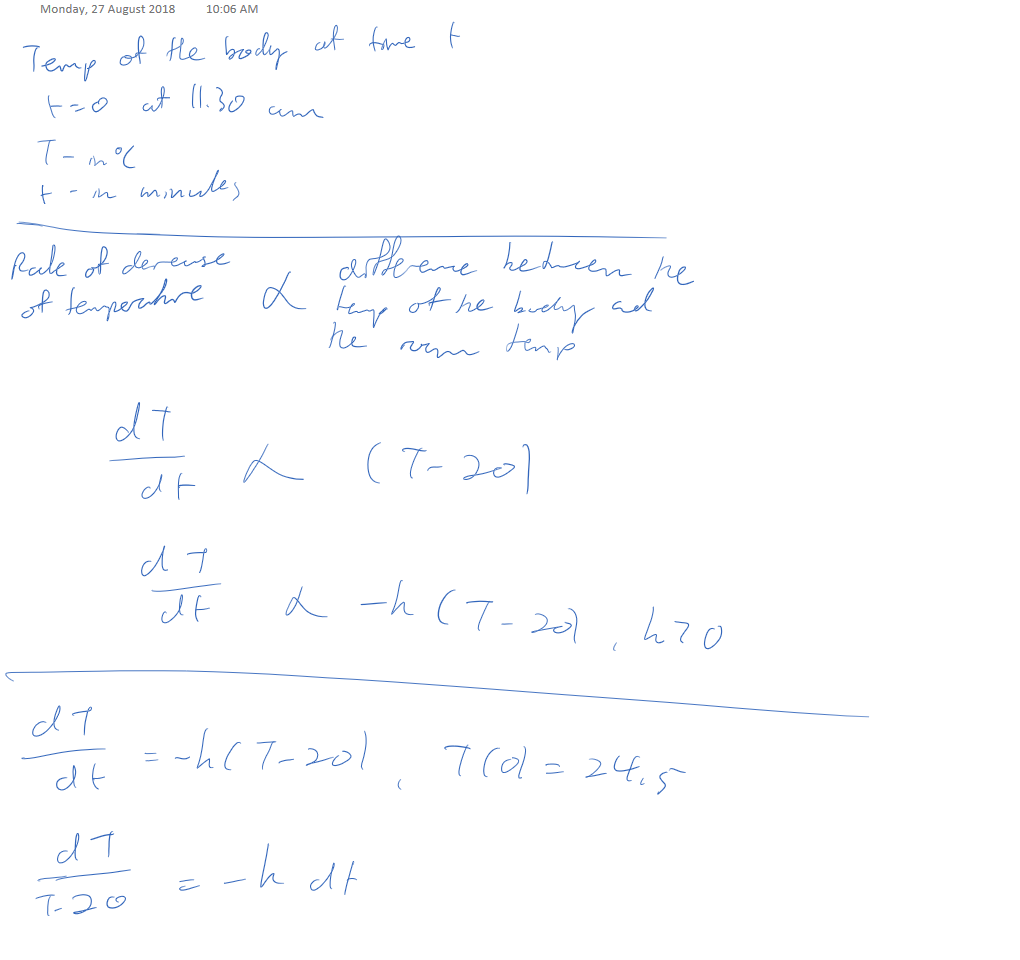 Monday, 27 August 2018 10:06 AM
Temp of the body at time t
t=0 at 11.30 am
T - in °C
t - in minutes
Rate of derease of temperature ∝ difference between he temp of he body ad he room temp
dT/dt ∝ (T-20)
dT/dt ∝ -k(T-20), k>0
dT/dt = -k(T-20), T(0) = 24.5
dT/T-20 = -k dt